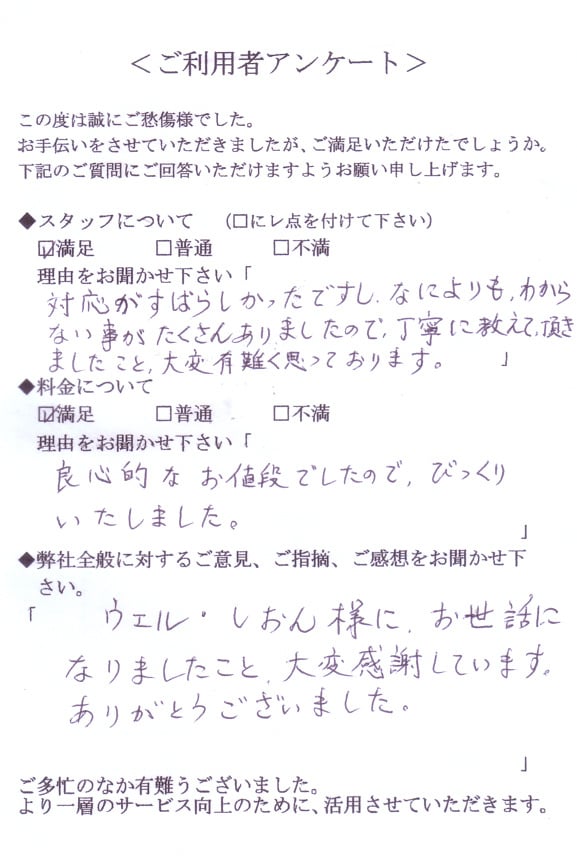 ＜ご利用者アンケート＞
この度は誠にご愁傷様でした。
お手伝いをさせていただきましたが、ご満足いただけたでしょうか。
下記のご質問にご回答いただけますようお願い申し上げます。
◆スタッフについて （□にレ点を付けて下さい）
☑満足 □普通 □不満
理由をお聞かせ下さい「
対応がすばらしかったですし、なによりも、わから
ない事がたくさんありましたので、丁寧に教えて、頂き
ましたこと、大変有難く思っております。 」
◆料金について
☑満足 □普通 □不満
理由をお聞かせ下さい「
良心的なお値段でしたので、びっくり
いたしました。
」
◆弊社全般に対するご意見、ご指摘、ご感想をお聞かせ下
さい。
「 ウェル・しおん様に、お世話に
なりましたこと、大変感謝しています。
ありがとうございました。
」
ご多忙のなか有難うございました。
より一層のサービス向上のために、活用させていただきます。